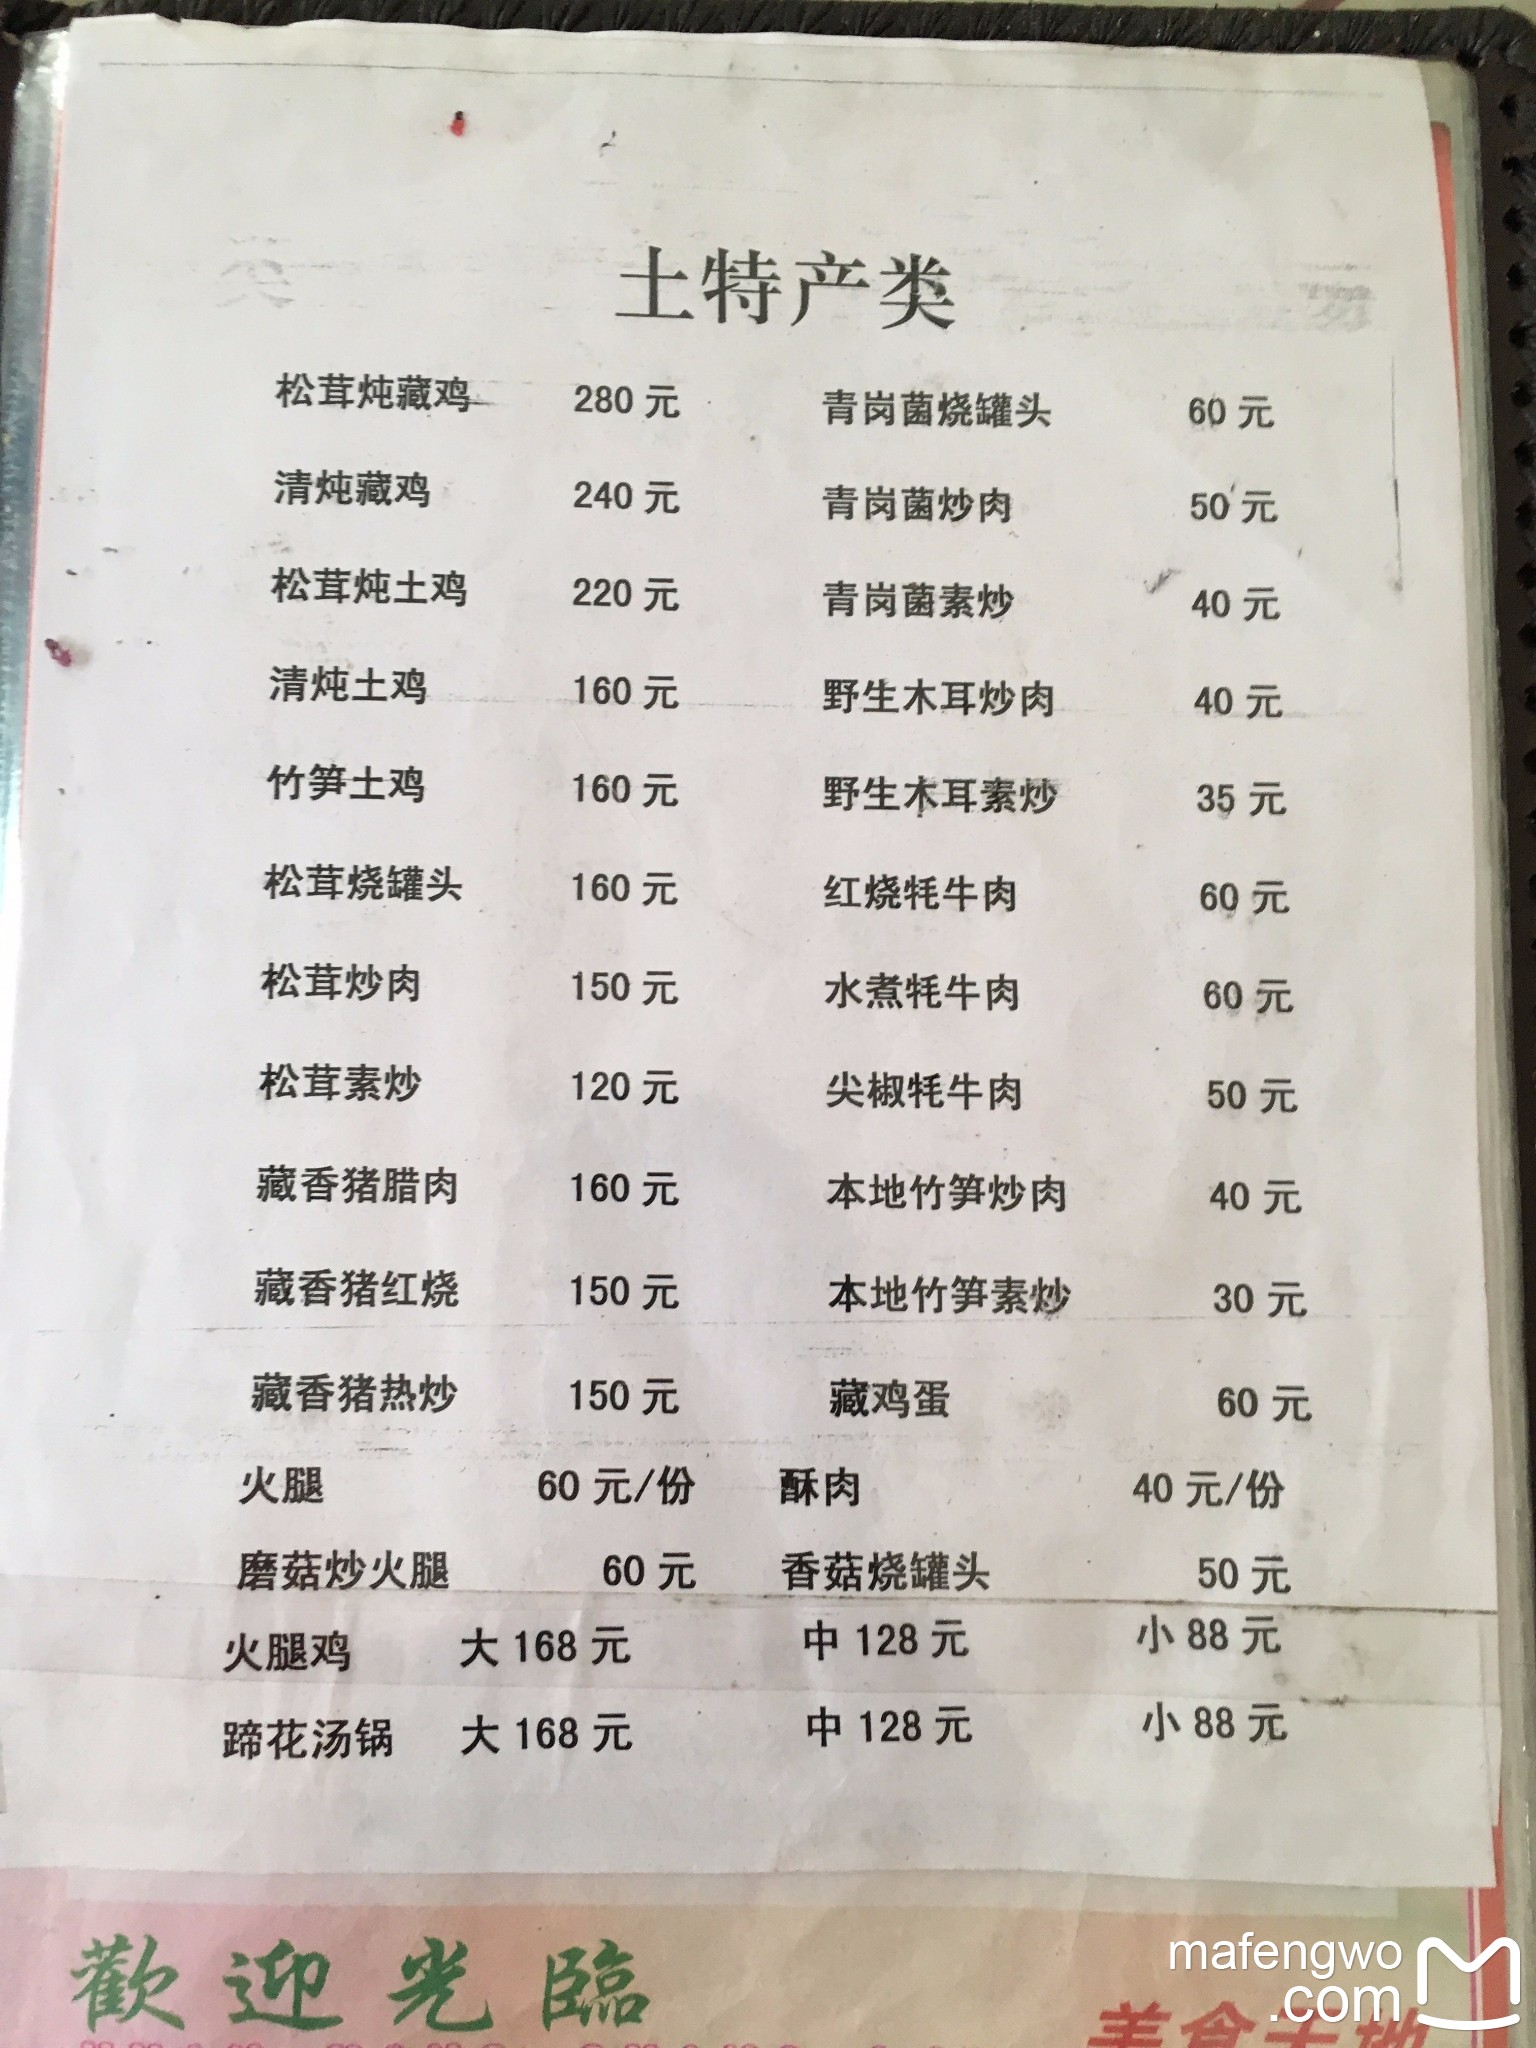 土特产类
松茸炖藏鸡 280 元 青岗菌烧罐头 60 元
清炖藏鸡 240 元 青岗菌炒肉 50 元
松茸炖土鸡 220 元 青岗菌素炒 40 元
清炖土鸡 160 元 野生木耳炒肉 40 元
竹笋土鸡 160 元 野生木耳素炒 35 元
松茸烧罐头 160 元 红烧牦牛肉 60 元
松茸炒肉 150 元 水煮牦牛肉 60 元
松茸素炒 120 元 尖椒牦牛肉 50 元
藏香猪腊肉 160 元 本地竹笋炒肉 40 元
藏香猪红烧 150 元 本地竹笋素炒 30 元
藏香猪热炒 150 元 藏鸡蛋 60 元
火腿 60 元/份 酥肉 40 元/份
磨菇炒火腿 60 元 香菇烧罐头 50 元
火腿鸡 大 168 元 中 128 元 小 88 元
蹄花汤锅 大 168 元 中 128 元 小 88 元
歡迎光臨
美食天地
mafengwo
.com